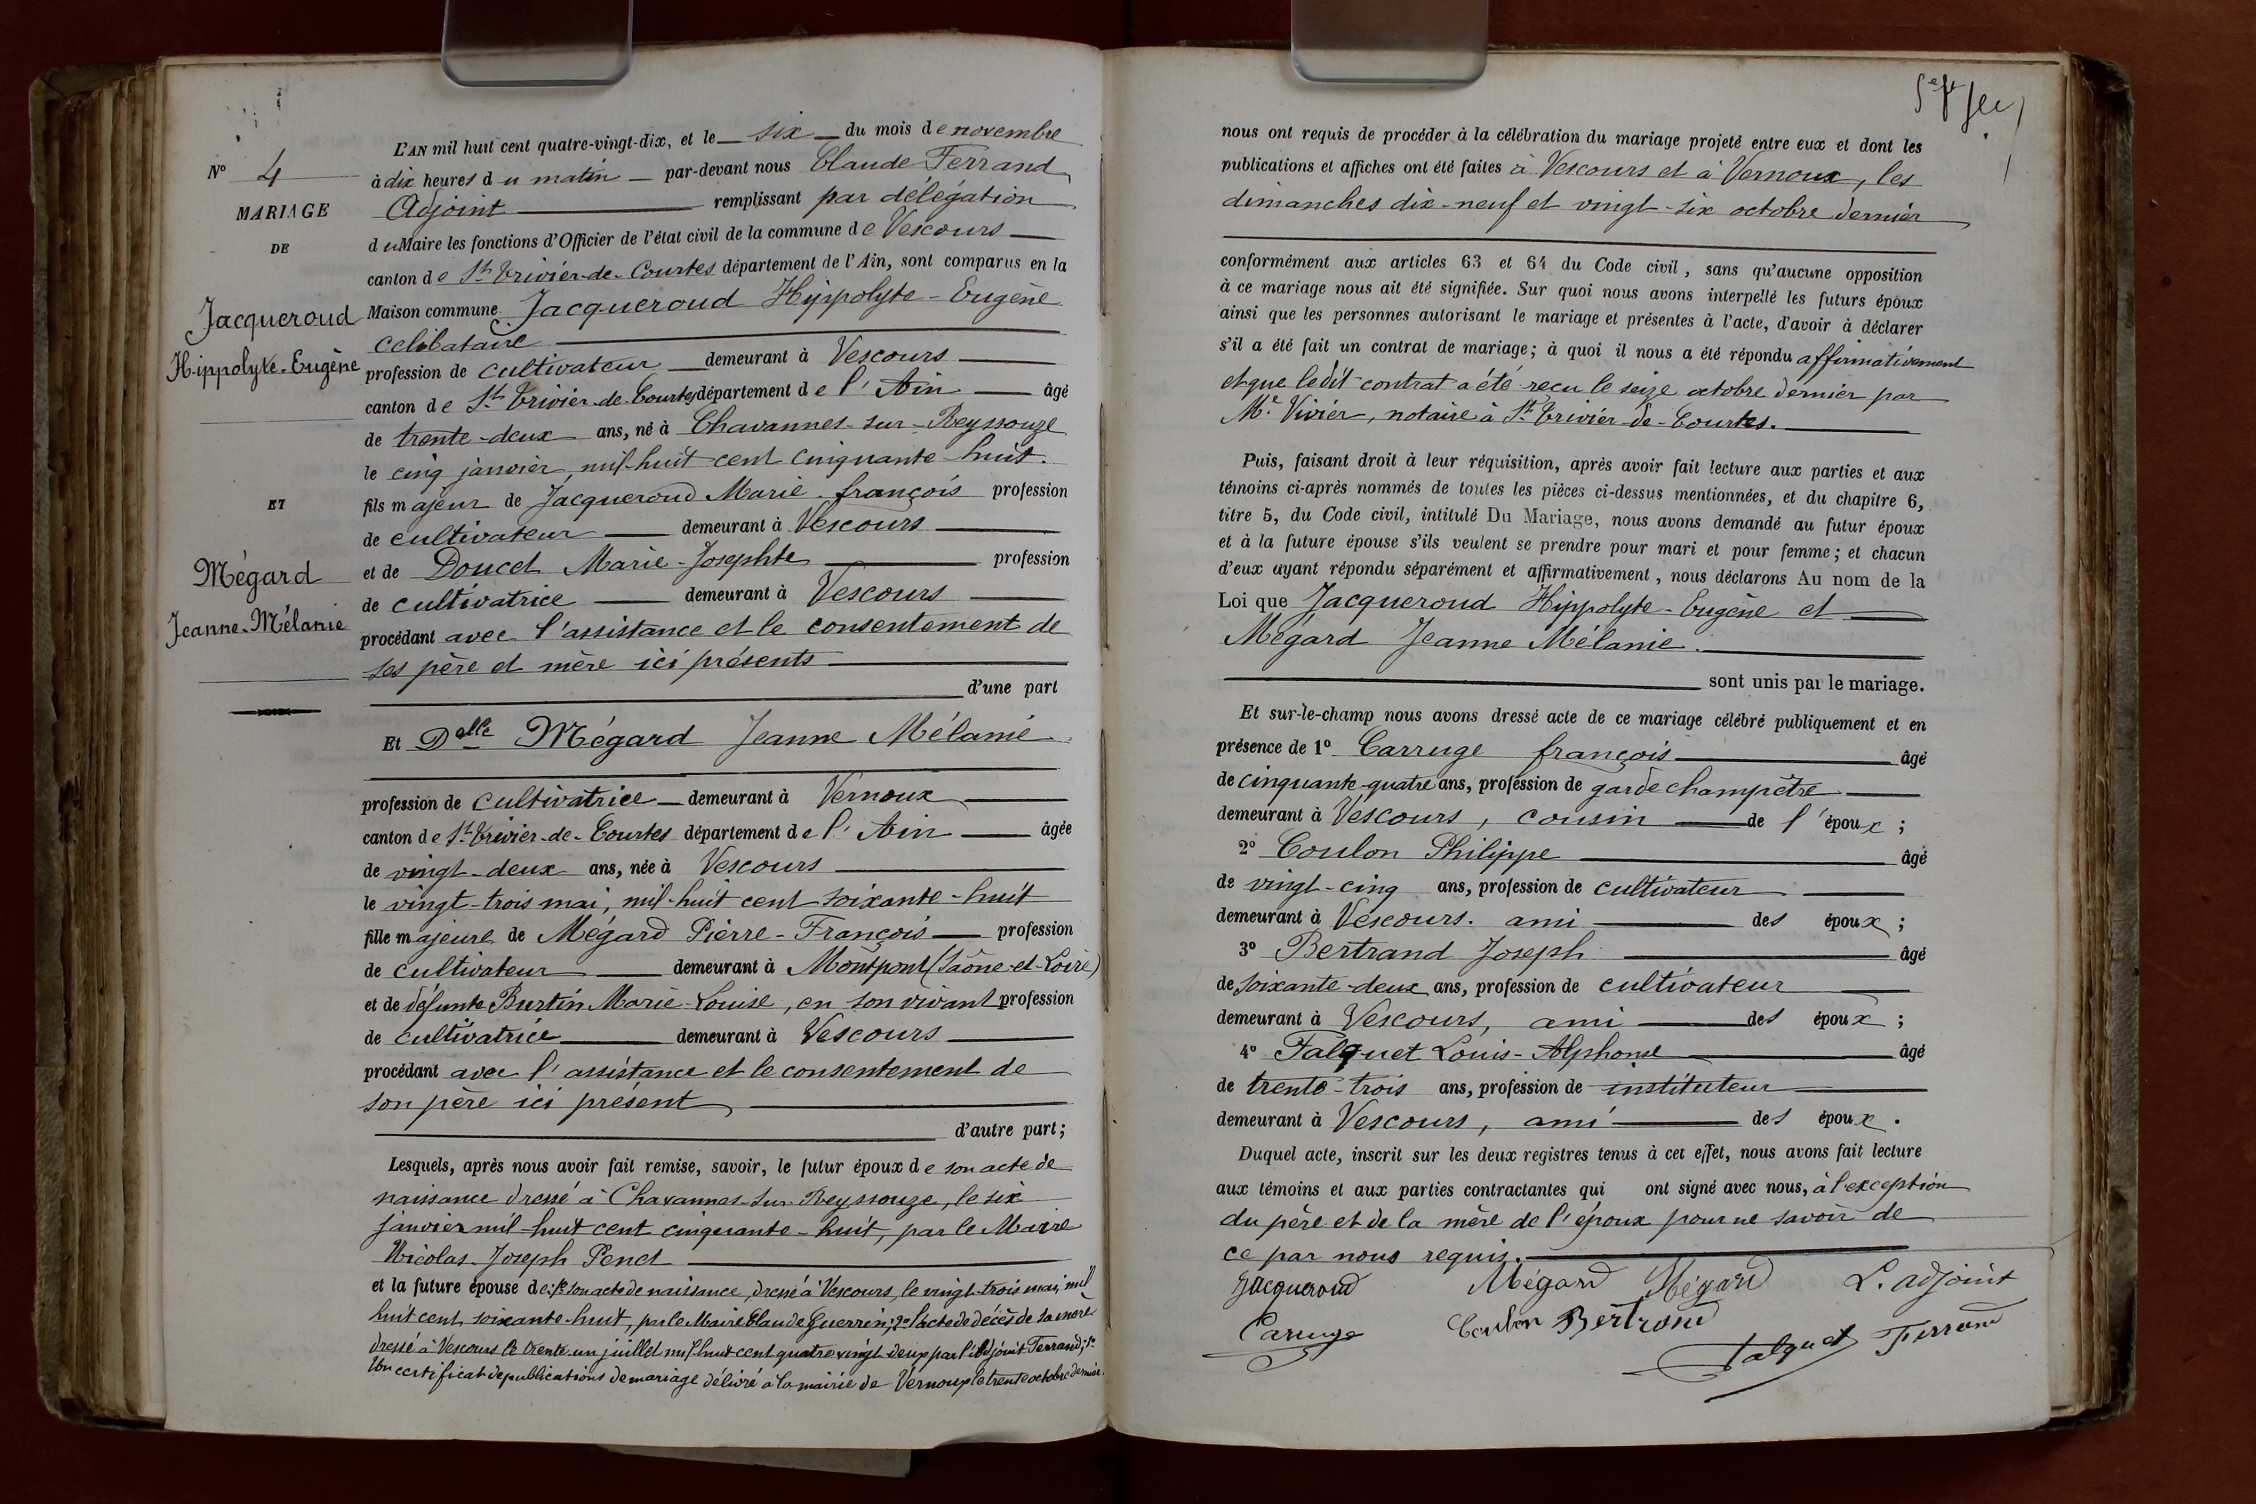 N° 4
MARIAGE
DE
Jacqueroud
Hippolyte-Eugène
ET
Mégard
Jeanne-Mélanie
L'AN mil huit cent quatre-vingt-dix, et le six du mois de novembre
à dix heures du matin par-devant nous Claude Ferrand
Adjoint remplissant par délégation
du Maire les fonctions d'Officier de l'état civil de la commune de Vescours
canton de St Trivier-de-Courtes département de l'Ain, sont comparus en la
Maison commune Jacqueroud Hippolyte-Eugène
celibataire
profession de cultivateur demeurant à Vescours
canton de St Trivier-de-Courtes département de l'Ain âgé
de trente-deux ans, né à Chavannes-sur-Reyssouze
le cinq janvier mil-huit cent cinquante-huit.
fils majeur de Jacqueroud Marie-françois profession
de cultivateur demeurant à Vescours
et de Doucet Marie-Josephte profession
de cultivatrice demeurant à Vescours
procédant avec l'assistance et le consentement de
ses père et mère ici présents
d'une part
Et Delle Mégard Jeanne Mélanie
profession de cultivatrice demeurant à Vernoux
canton de St Trivier-de-Courtes département de l'Ain âgée
de vingt-deux ans, née à Vescours
le vingt-trois mai, mil-huit cent soixante-huit
fille majeure de Mégard Pierre-François profession
de cultivateur demeurant à Montpont (Saône-et-Loire)
et de défunte Burtin Marie-Louise, en son vivant profession
de cultivatrice demeurant à Vescours
procédant avec l'assistance et le consentement de
son père ici présent
d'autre part;
Lesquels, après nous avoir fait remise, savoir, le futur époux de son acte de
naissance dressé à Chavannes-sur-Reyssouze, le six
janvier mil-huit cent cinquante-huit, par le Maire
Nicolas-Joseph Penet
et la future épouse de: 1° son acte de naissance, dressé à Vescours, le vingt-trois mai, mil
huit cent soixante-huit, par le Maire Claude Guerrin; 2° l'acte de décès de sa mère
dressé à Vescours le trente un juillet mil-huit cent quatre vingt deux par l'adjoint Ferrand; 3°
Un certificat de publications de mariage délivré à la mairie de Vernoux le trente octobre dernier.
nous ont requis de procéder à la célébration du mariage projeté entre eux et dont les
publications et affiches ont été faites à Vescours et à Vernoux, les
dimanches dix-neuf et vingt-six octobre dernier
conformément aux articles 63 et 64 du Code civil, sans qu'aucune opposition
à ce mariage nous ait été signifiée. Sur quoi nous avons interpellé les futurs époux
ainsi que les personnes autorisant le mariage et présentes à l'acte, d'avoir à déclarer
s'il a été fait un contrat de mariage; à quoi il nous a été répondu affirmativement
et que ledit contrat a été reçu le seize octobre dernier par
Me Vivier, notaire à St Trivier-de-Courtes.
Puis, faisant droit à leur réquisition, après avoir fait lecture aux parties et aux
témoins ci-après nommés de toutes les pièces ci-dessus mentionnées, et du chapitre 6,
titre 5, du Code civil, intitulé Du Mariage, nous avons demandé au futur époux
et à la future épouse s'ils veulent se prendre pour mari et pour femme; et chacun
d'eux ayant répondu séparément et affirmativement, nous déclarons Au nom de la
Loi que Jacqueroud Hippolyte-Eugène et
Mégard Jeanne Mélanie.
sont unis par le mariage.
Et sur-le-champ nous avons dressé acte de ce mariage célébré publiquement et en
présence de 1° Carruge françois âgé
de cinquante-quatre ans, profession de garde champêtre
demeurant à Vescours, cousin de l'époux;
2° Coulon Philippe âgé
de vingt-cinq ans, profession de cultivateur
demeurant à Vescours. ami des époux;
3° Bertrand Joseph âgé
de soixante-deux ans, profession de cultivateur
demeurant à Vescours, ami des époux;
4° Falquet Louis-Alphonse âgé
de trente-trois ans, profession de instituteur
demeurant à Vescours, ami des époux.
Duquel acte, inscrit sur les deux registres tenus à cet effet, nous avons fait lecture
aux témoins et aux parties contractantes qui ont signé avec nous, à l'exception
du père et de la mère de l'époux pour ne savoir de
ce par nous requis.
Jacqueroud Mégard Mégard L. adjoint
Carruge Coulon Bertrand
Falquet Ferrand